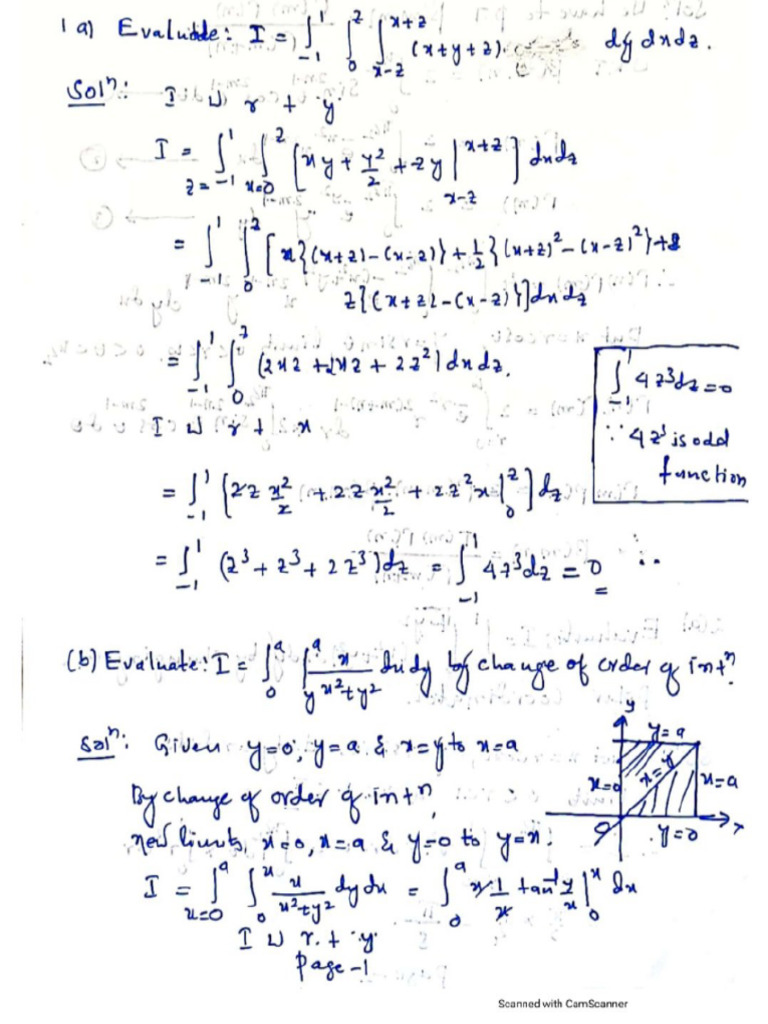 1 a) Evaluate: I = ∫_{-1}^{1} ∫_{0}^{z} ∫_{x-z}^{x+z} (x+y+z) dy dx dz.
Solⁿ: I w r t y
I = ∫_{z=-1}^{1} ∫_{x=0}^{z} [xy + y²/2 + zy |_{x-z}^{x+z}] dx dz
= ∫_{-1}^{1} ∫_{0}^{z} [x{(x+z)-(x-z)} + 1/2 {(x+z)²-(x-z)²} +
z{(x+z)-(x-z)}] dx dz
= ∫_{-1}^{1} ∫_{0}^{z} (2xz + 2xz + 2z²) dx dz.
I w r t x
= ∫_{-1}^{1} [2z x²/2 + 2z x²/2 + 2z²x |_{0}^{z}] dz
= ∫_{-1}^{1} (z³ + z³ + 2z³) dz = ∫_{-1}^{1} 4z³dz = 0 ∵
∫_{-1}^{1} 4z³dz = 0
∵ 4z³ is odd
function
(b) Evaluate: I = ∫_{0}^{a} ∫_{y}^{a} x/(x²+y²) dx dy by change of order of intⁿ.
Solⁿ: Given y=0, y=a & x=y to x=a
By change of order of intⁿ
new limits, x=0, x=a & y=0 to y=x.
I = ∫_{x=0}^{a} ∫_{0}^{x} x/(x²+y²) dy dx = ∫_{0}^{a} x 1/x tan⁻¹ y/x |_{0}^{x} dx
I w r. t y.
Page -1
y
y=a
x=0
x=y
x=a
x
y=0
Scanned with CamScanner